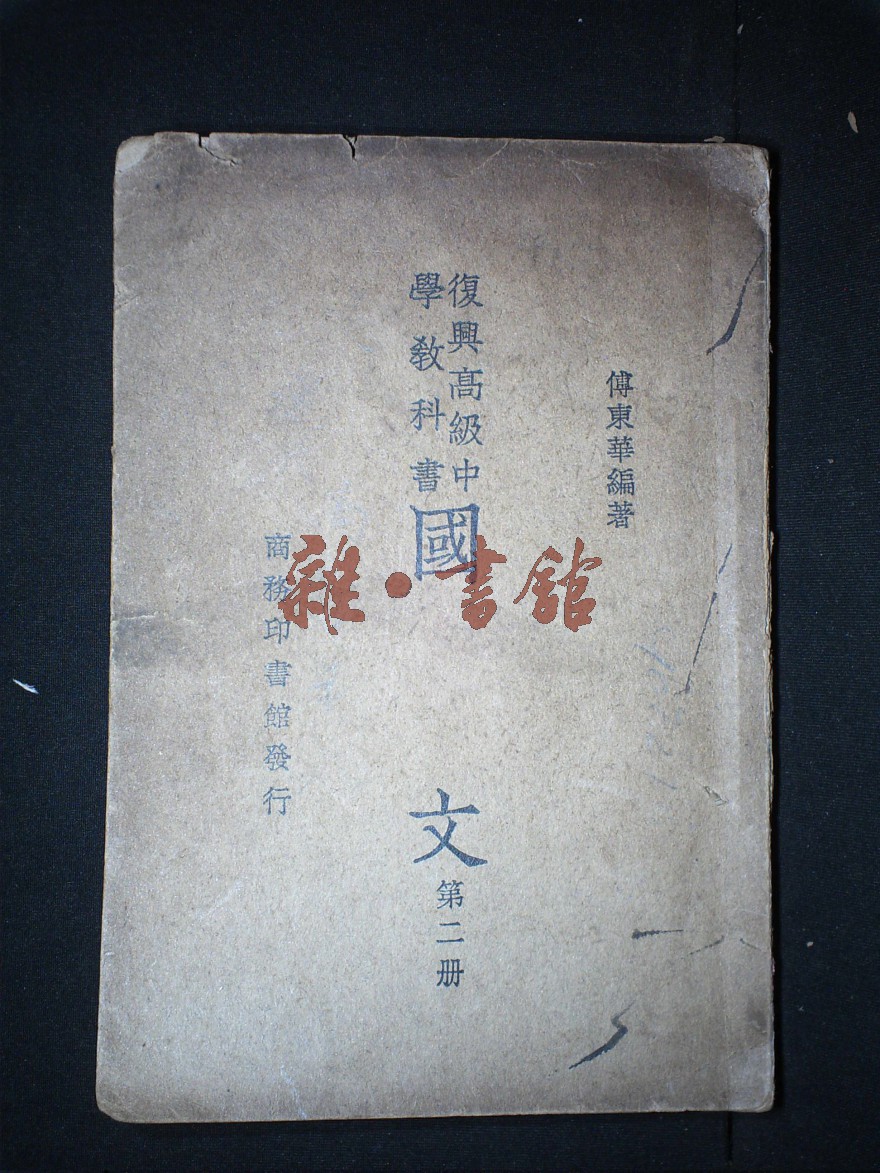 傅東華編著
復興高級中
學教科書
國文
第二册
商務印書館發行
雜·書館